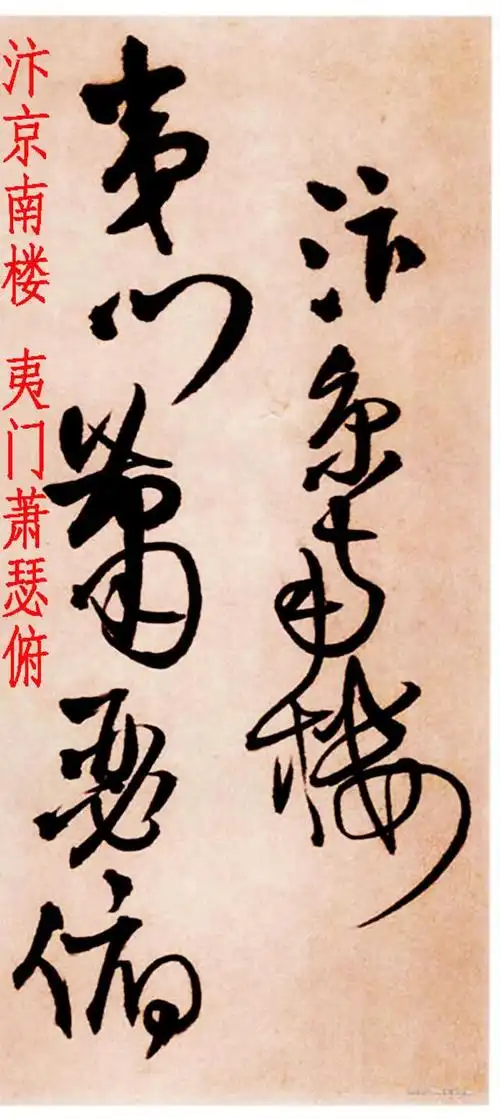 汴京南楼
夷门萧瑟俯
汴京南楼 夷门萧瑟俯